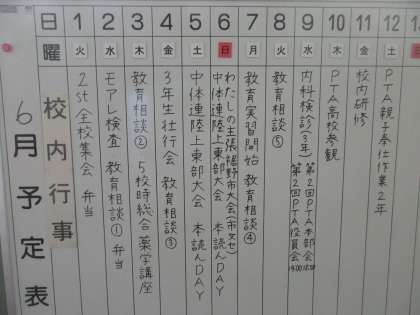 6月予定表
日
曜
校内行事
1
火
2st 全校集会 弁当
2
水
モアレ検査 教育相談① 弁当
3
木
教育相談② 5校時総合 薬学講座
4
金
3年生壮行会 教育相談③
5
土
中体連陸上東部大会 本読んDAY
6
日
わたしの主張裾野市大会(市文セ)
中体連陸上東部大会 本読んDAY
7
月
教育実習開始 教育相談④
8
火
教育相談⑤
9
水
内科検診(3年) 第2回PTA本部会
第2回PTA役員会
10
木
PTA高校参観
11
金
校内研修
12
土
PTA親子奉仕作業2年